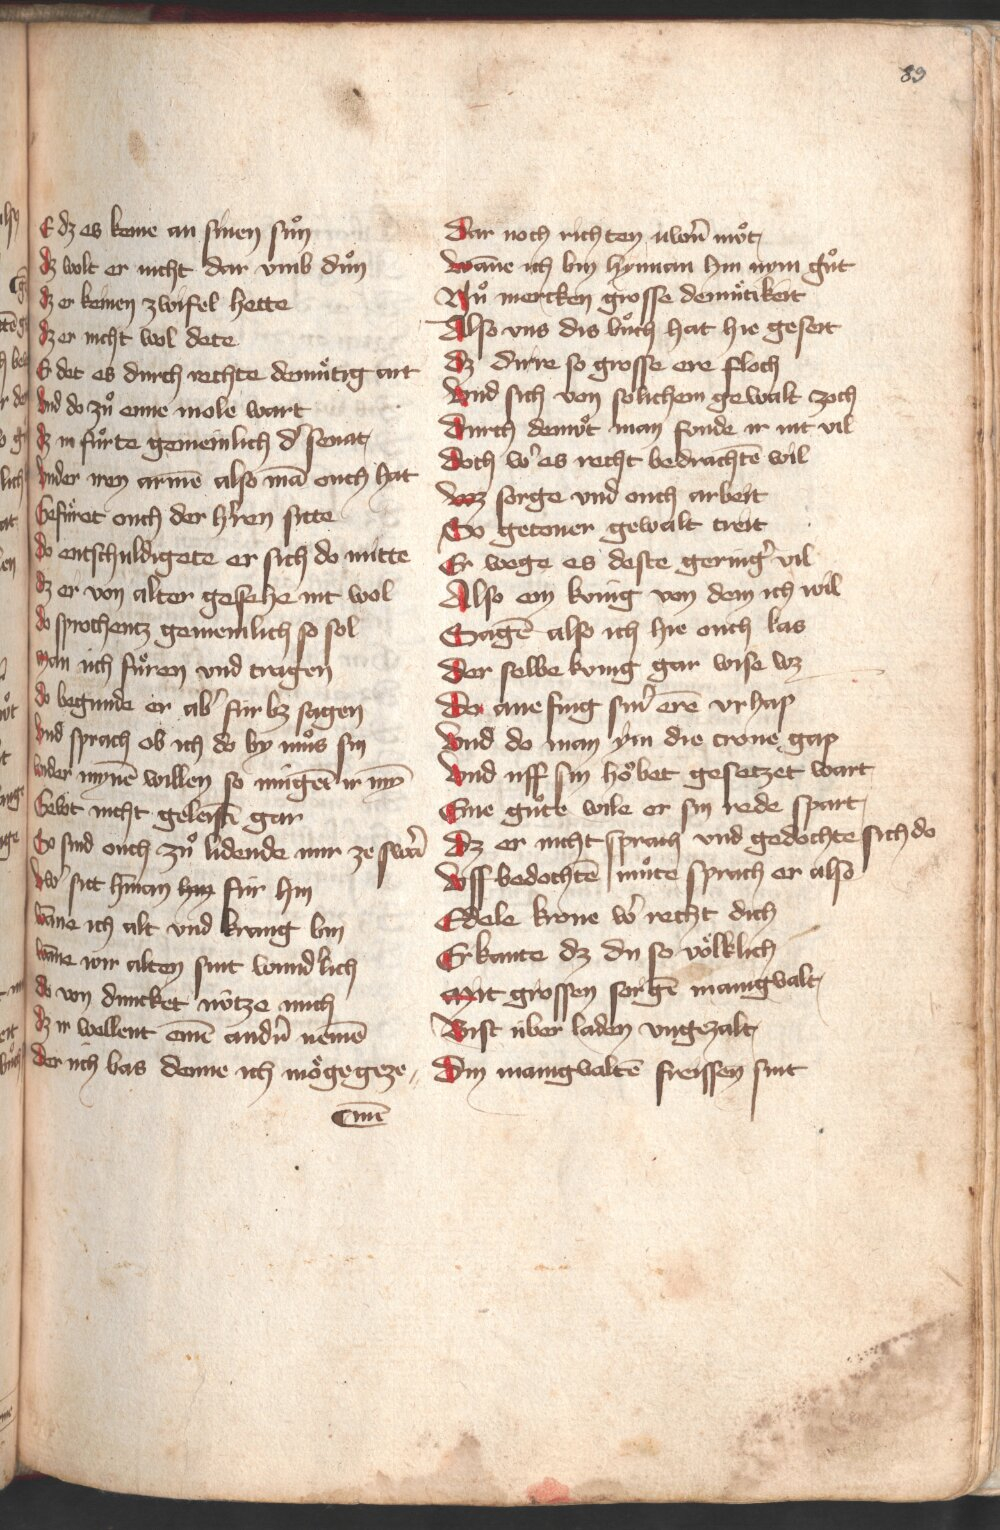 89
E dz es keme an sinen sůn
dz wolt er nicht dar vmb důn
dz er keinen zwifel hette
dz er nicht wol dete
Er det es durch rechte demůtig art
vnd do zů eime mole wart
dz in fůrte gemeinlich d' senat
vnder iren armē also mā ouch hat
Gefůret ouch der h'ren sitte
do entschuldigete er sich do mitte
dz er von alter gesehe nit wol
do sprochentz gemeinlich so sol
man üch fůren vnd tragen
do begunde er ab' für bz sagen
vnd sprach ob ich do by můs sin
wider mynē willen so mügēt ir my
Gebot nicht geleistē gar
So sind ouch zů lidende mir ze swār
sitt hman für hin
wāne ich alt vnd krang bin
wāne wir alten sint wund'lich
do von duncket nötze mich
dz ir wellent einē andern nemē
der üch bas denne ich mőge geze
men
dar noch richten uwern můt
wāne ich bin hynnan hin nym gůt
Nů mercken grosse demůtikeit
Also vns dis bůch hat hie geseit
dz dirre so grosse ere floch
vnd sich von solichem gewalt zoch
durch demůt man funde ir nit vil
doch w' es recht bedrachtē wil
waz sorge vnd ouch arbeit
So getoner gewalt treit
Er wege es deste gering' vil
Also ein kvnig von dem ich wil
Sagē also ich hie ouch las
der selbe kvnig gar wise wz
do ane fing sin' erē vrhap
vnd do man ym die crone gap
vnd uff sin hőbet gesetzet wart
Eine gůte wile er sin rede spart
dz er nicht sprach vnd gedochte sich do
vss bedochtē můte sprach er also
Edele krone w' recht dich
Erkante dz du so vőlklich
Mit grossen sorgē manigvalt
Bist über laden vngezalt
din manigvaltē freissen sint